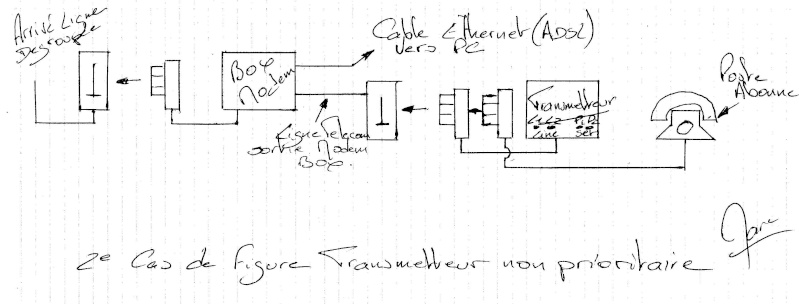 Arrivé Ligne
Degroupée
Box
Modem
Cable Ethernet (ADSL)
vers PC
Ligne Telecom
sortie Modem
Box.
Transmetteur
L1L2
Line
Poste
Abonné
2e Cas de figure Transmetteur non prioritaire